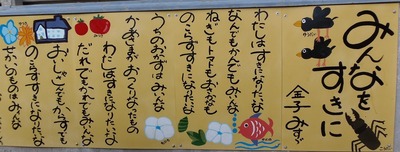 みんなを
すきに
金子みすゞ
わたしはすきになりたいな、
なんでもかんでもみいんな。
ねぎもトマトもおさかなも
のこらずすきになりたいな。
うちのおかずはみいんな
かあさまがおつくりなったもの
わたしはすきになりたいな
だれでもかれでもみんな
おいしゃさんでもからすでも
のこらずすきになりたいな
せかいのものはみィんな